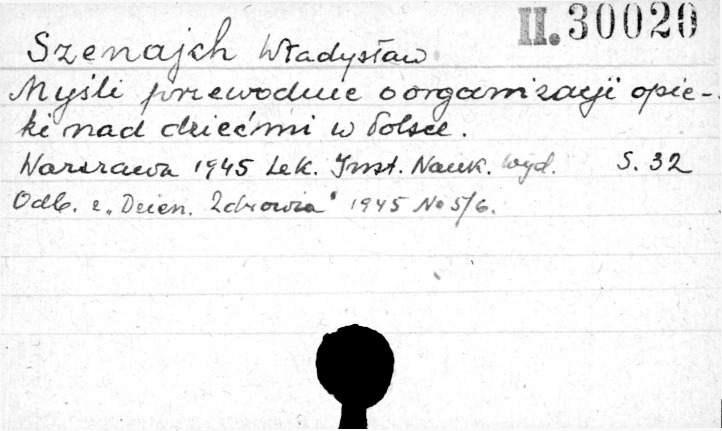 II. 30020
Szenajch Władysław
Myśli przewodnie o organizacji opie-
ki nad dziećmi w Polsce.
Warszawa 1945 Lek. Inst. Nauk. Wyd. S. 32
Odb. z „Dzien. Zdrowia" 1945 No 5/6.